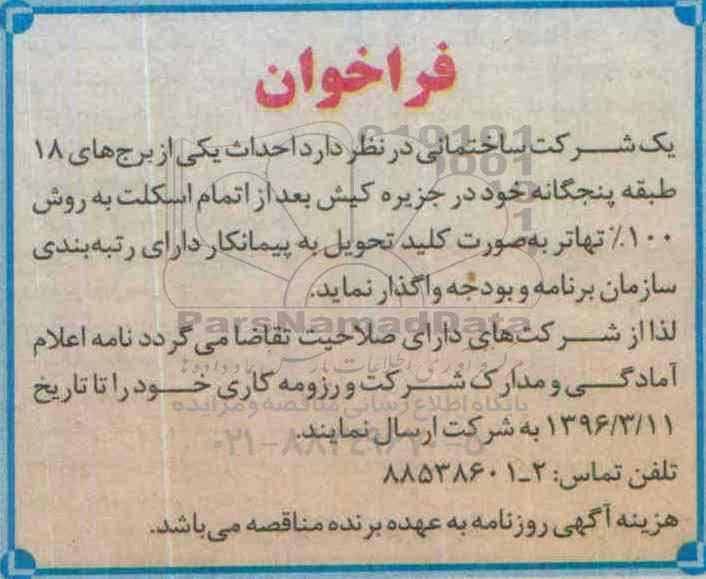 فراخوان
یک شرکت ساختمانی در نظر دارد احداث یکی از برج‌های ۱۸
طبقه پنجگانه خود در جزیره کیش بعد از اتمام اسکلت به روش
۱۰۰٪ تهاتر به‌صورت کلید تحویل به پیمانکار دارای رتبه‌بندی
سازمان برنامه و بودجه واگذار نماید.
لذا از شرکت‌های دارای صلاحیت تقاضا می‌گردد نامه اعلام
آمادگی و مدارک شرکت و رزومه کاری خود را تا تاریخ
۱۳۹۶/۳/۱۱ به شرکت ارسال نمایند.
تلفن تماس: ۲_۸۸۵۳۸۶۰۱
هزینه آگهی روزنامه به عهده برنده مناقصه می‌باشد.
ParsNamadData
پایگاه اطلاع رسانی مناقصه و مزایده
۰۲۱-۸۸۳۴۹۶۷۰-۵